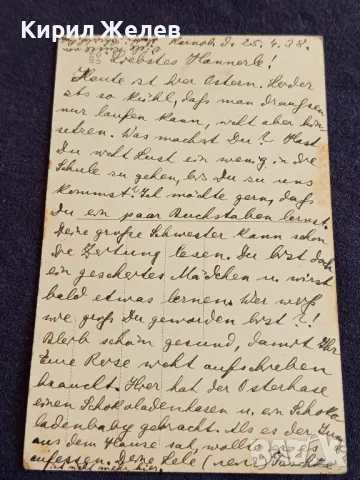 Кирил Желев
Karnob. d. 25.4.38.
Liebstes Hannerle!
Heute ist hier Ostern. Leider
ists so kühl, dass man draussen
nur laufen kann, nicht aber hin
setzen. Was machst Du? Hast
Du nicht Lust ein wenig in die
Schule zu gehen, bis Du zu uns
kommst? Ich möchte gern, dass
Du ein paar Buchstaben lernst.
Deine grosse Schwester kann schon
die Zeitung lesen. Du bist doch
ein gescheites Mädchen u. wirst
bald etwas lernen. Wer weiss
wie gross Du geworden bist?!
Bleib schön gesund, damit Ihr
Eure Reise nicht aufschieben
braucht. Hier hat der Osterhase
einen Schokoladenhasen u. ein Schoko
ladenbaby gebracht. Als es der Junge
aus dem Hause sah, wollte er es
aufessen. Deine Lele (
ist nicht mehr hier.
bazar